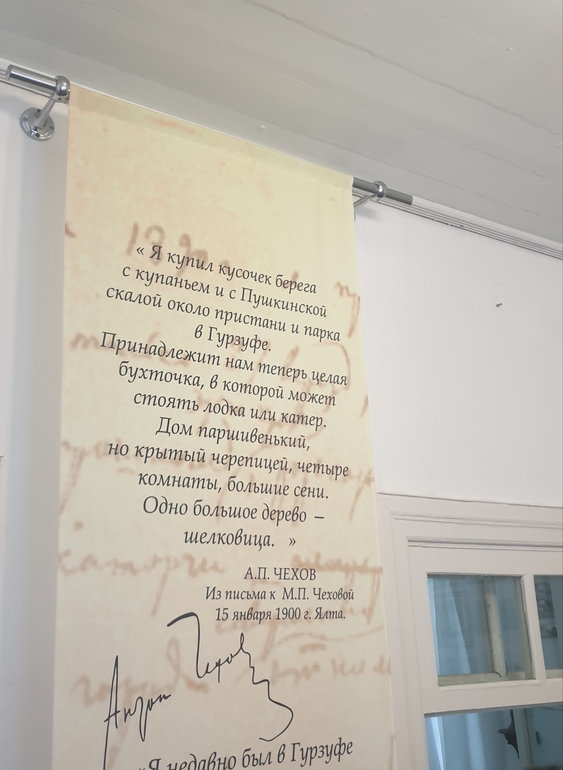 « Я купил кусочек берега
с купаньем и с Пушкинской
скалой около пристани и парка
в Гурзуфе.
Принадлежит нам теперь целая
бухточка, в которой может
стоять лодка или катер.
Дом паршивенький,
но крытый черепицей, четыре
комнаты, большие сени.
Одно большое дерево –
шелковица. »
А.П. ЧЕХОВ
Из письма к М.П. Чеховой
15 января 1900 г. Ялта.
Антон Чехов
«Я недавно был в Гурзуфе